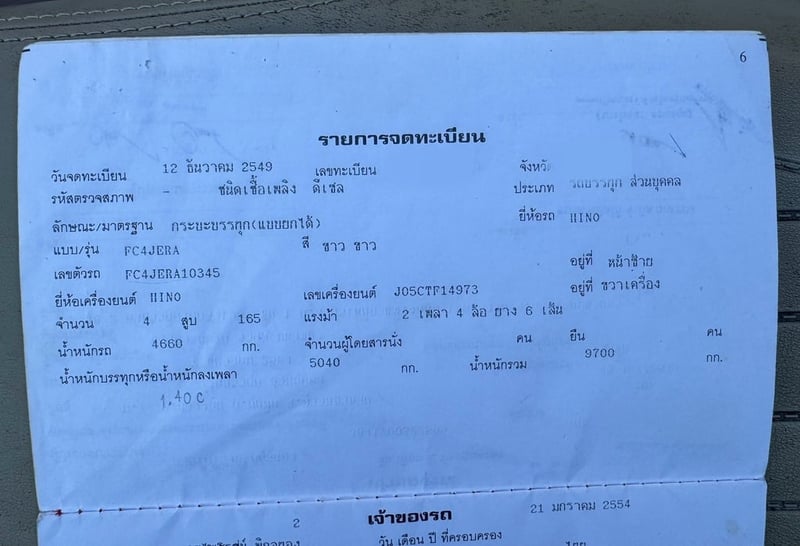 6
รายการจดทะเบียน
วันจดทะเบียน 12 ธันวาคม 2549 เลขทะเบียน จังหวัด
รหัสตรวจสภาพ - ชนิดเชื้อเพลิง ดีเซล ประเภท รถบรรทุก ส่วนบุคคล
ลักษณะ/มาตรฐาน กระบะบรรทุก(แบบยกได้) ยี่ห้อรถ HINO
แบบ/รุ่น FC4JERA สี ขาว ขาว
เลขตัวรถ FC4JERA10345 อยู่ที่ หน้าซ้าย
ยี่ห้อเครื่องยนต์ HINO เลขเครื่องยนต์ J05CTF14973 อยู่ที่ ขวาเครื่อง
จำนวน 4 สูบ 165 แรงม้า 2 เพลา 4 ล้อ ยาง 6 เส้น
น้ำหนักรถ 4660 กก. จำนวนผู้โดยสารนั่ง คน ยืน คน
น้ำหนักบรรทุกหรือน้ำหนักลงเพลา 5040 กก. น้ำหนักรวม 9700 กก.
1.40 C
2 เจ้าของรถ 21 มกราคม 2554
วัน เดือน ปี ที่ครอบครอง